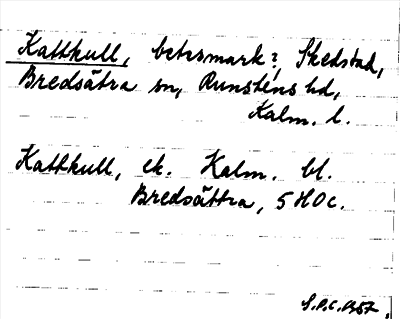 Kattkull, betesmark?, Skedstad,
Bredsätra sn, Runstens hd,
Kalm. l.
Kattkull, ek. Kalm. bl.
Bredsättra, 5 H O c.
S.P.C. 1957.